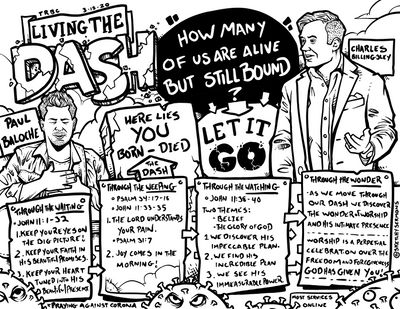 TRBC 3-15-20
LIVING THE
DASH
"HOW MANY
OF US ARE ALIVE
BUT STILL BOUND
?"
CHARLES
BILLINGSLEY
PAUL
BALOCHE
HERE LIES
YOU
BORN - DIED
THE
DASH
LET IT
GO
THROUGH THE WAITING
JOHN 11:1-32
1. KEEP YOUR EYES ON
THE BIG PICTURE!
2. KEEP YOUR FAITH IN
HIS BEAUTIFUL PROMISES.
3. KEEP YOUR HEART
TUNED INTO HIS
BEAUTIFUL PRESENT
THROUGH THE WEEPING
PSALM 34:17-18
JOHN 11:33-35
1. THE LORD UNDERSTANDS
YOUR PAIN.
PSALM 31:7
2. JOY COMES IN
THE MORNING!
THROUGH THE WATCHING
JOHN 11:36-40
TWO THEMES:
BELIEF
THE GLORY OF GOD
1. WE DISCOVER HIS
IMPECCABLE PLAN
2. WE FIND HIS
INCREDIBLE PLAN
3. WE SEE HIS
IMMEASURABLE POWER
THROUGH THE WONDER
AS WE MOVE THROUGH
OUR DASH WE DISCOVER
THE WONDER OF WORSHIP
AND HIS INTIMATE PRESENCE
WORSHIP IS A PERPETUAL
CELEBRATION OVER THE
FREEDOM AND FORGIVENESS
GOD HAS GIVEN YOU!
PRAYING AGAINST CORONA
MOST SERVICES
ONLINE